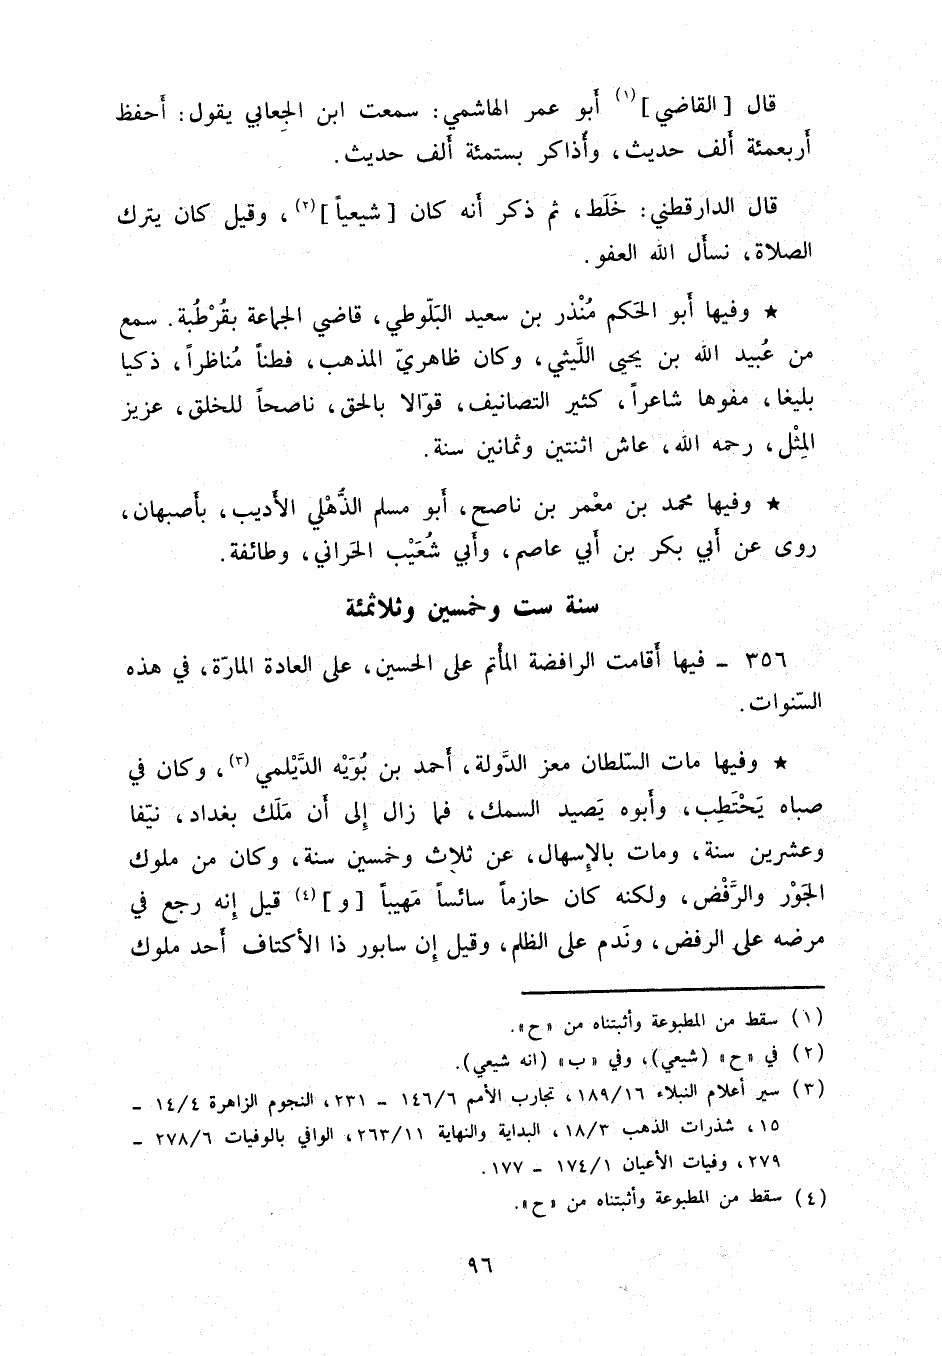 قال [ القاضي ](١) أبو عمر الهاشمي: سمعت ابن الجِعابي يقول: أَحفظ
أربعمئة أَلف حديث، وأُذاكر بستمئة أَلف حديث.
قال الدارقطني: خَلَط، ثم ذكر أَنه كان [ شيعياً ](٢)، وقيل كان يترك
الصلاة، نسأَل الله العفو.
★ وفيها أَبو الحَكم مُنْذر بن سعيد البَلّوطي، قاضي الجماعة بقُرْطُبة. سمع
من عُبيد الله بن يحيى اللَّيثي، وكان ظاهريّ المذهب، فطناً مُناظراً، ذكيا
بليغا، مفوها شاعراً، كثير التصانيف، قوّالا بالحق، ناصحاً للخلق، عزيز
المِثْل، رحمه الله، عاش اثنتين وثمانين سنة.
★ وفيها محمد بن معْمر بن ناصح، أَبو مسلم الذُّهْلي الأَديب، بأَصبهان،
روى عن أَبي بكر بن أَبي عاصم، وأَبي شُعَيْب الحَراني، وطائفة.
سنة ست وخمسين وثلاثمئة
٣٥٦ ـ فيها أَقامت الرافضة المأْتم على الحسين، على العادة المارّة، في هذه
السّنوات.
★ وفيها مات السّلطان معز الدَّولة، أَحمد بن بُوَيْه الدَّيْلمي(٣)، وكان في
صباه يَحْتَطِب، وأَبوه يَصيد السمك، فما زال إِلى أَن مَلَك بغداد، نيّفا
وعشرين سنة، ومات بالإِسهال، عن ثلاث وخمسين سنة، وكان من ملوك
الجَوْر والرَّفْض، ولكنه كان حازماً سائساً مَهيباً [ و ](٤) قيل إِنه رجع في
مرضه على الرفض، ونَدم على الظلم، وقيل إِن سابور ذا الأكتاف أَحد ملوك
(١) سقط من المطبوعة وأثبتناه من «ح».
(٢) في «ح» (شيعي)، وفي «ب» (انه شيعي).
(٣) سير أعلام النبلاء ١٨٩/١٦، تجارب الأمم ١٤٦/٦ ـ ٢٣١، النجوم الزاهرة ١٤/٤ ـ
١٥، شذرات الذهب ١٨/٣، البداية والنهاية ٢٦٣/١١، الوافي بالوفيات ٢٧٨/٦ ـ
٢٧٩، وفيات الأعيان ١٧٤/١ ـ ١٧٧.
(٤) سقط من المطبوعة وأثبتناه من «ح».
٩٦